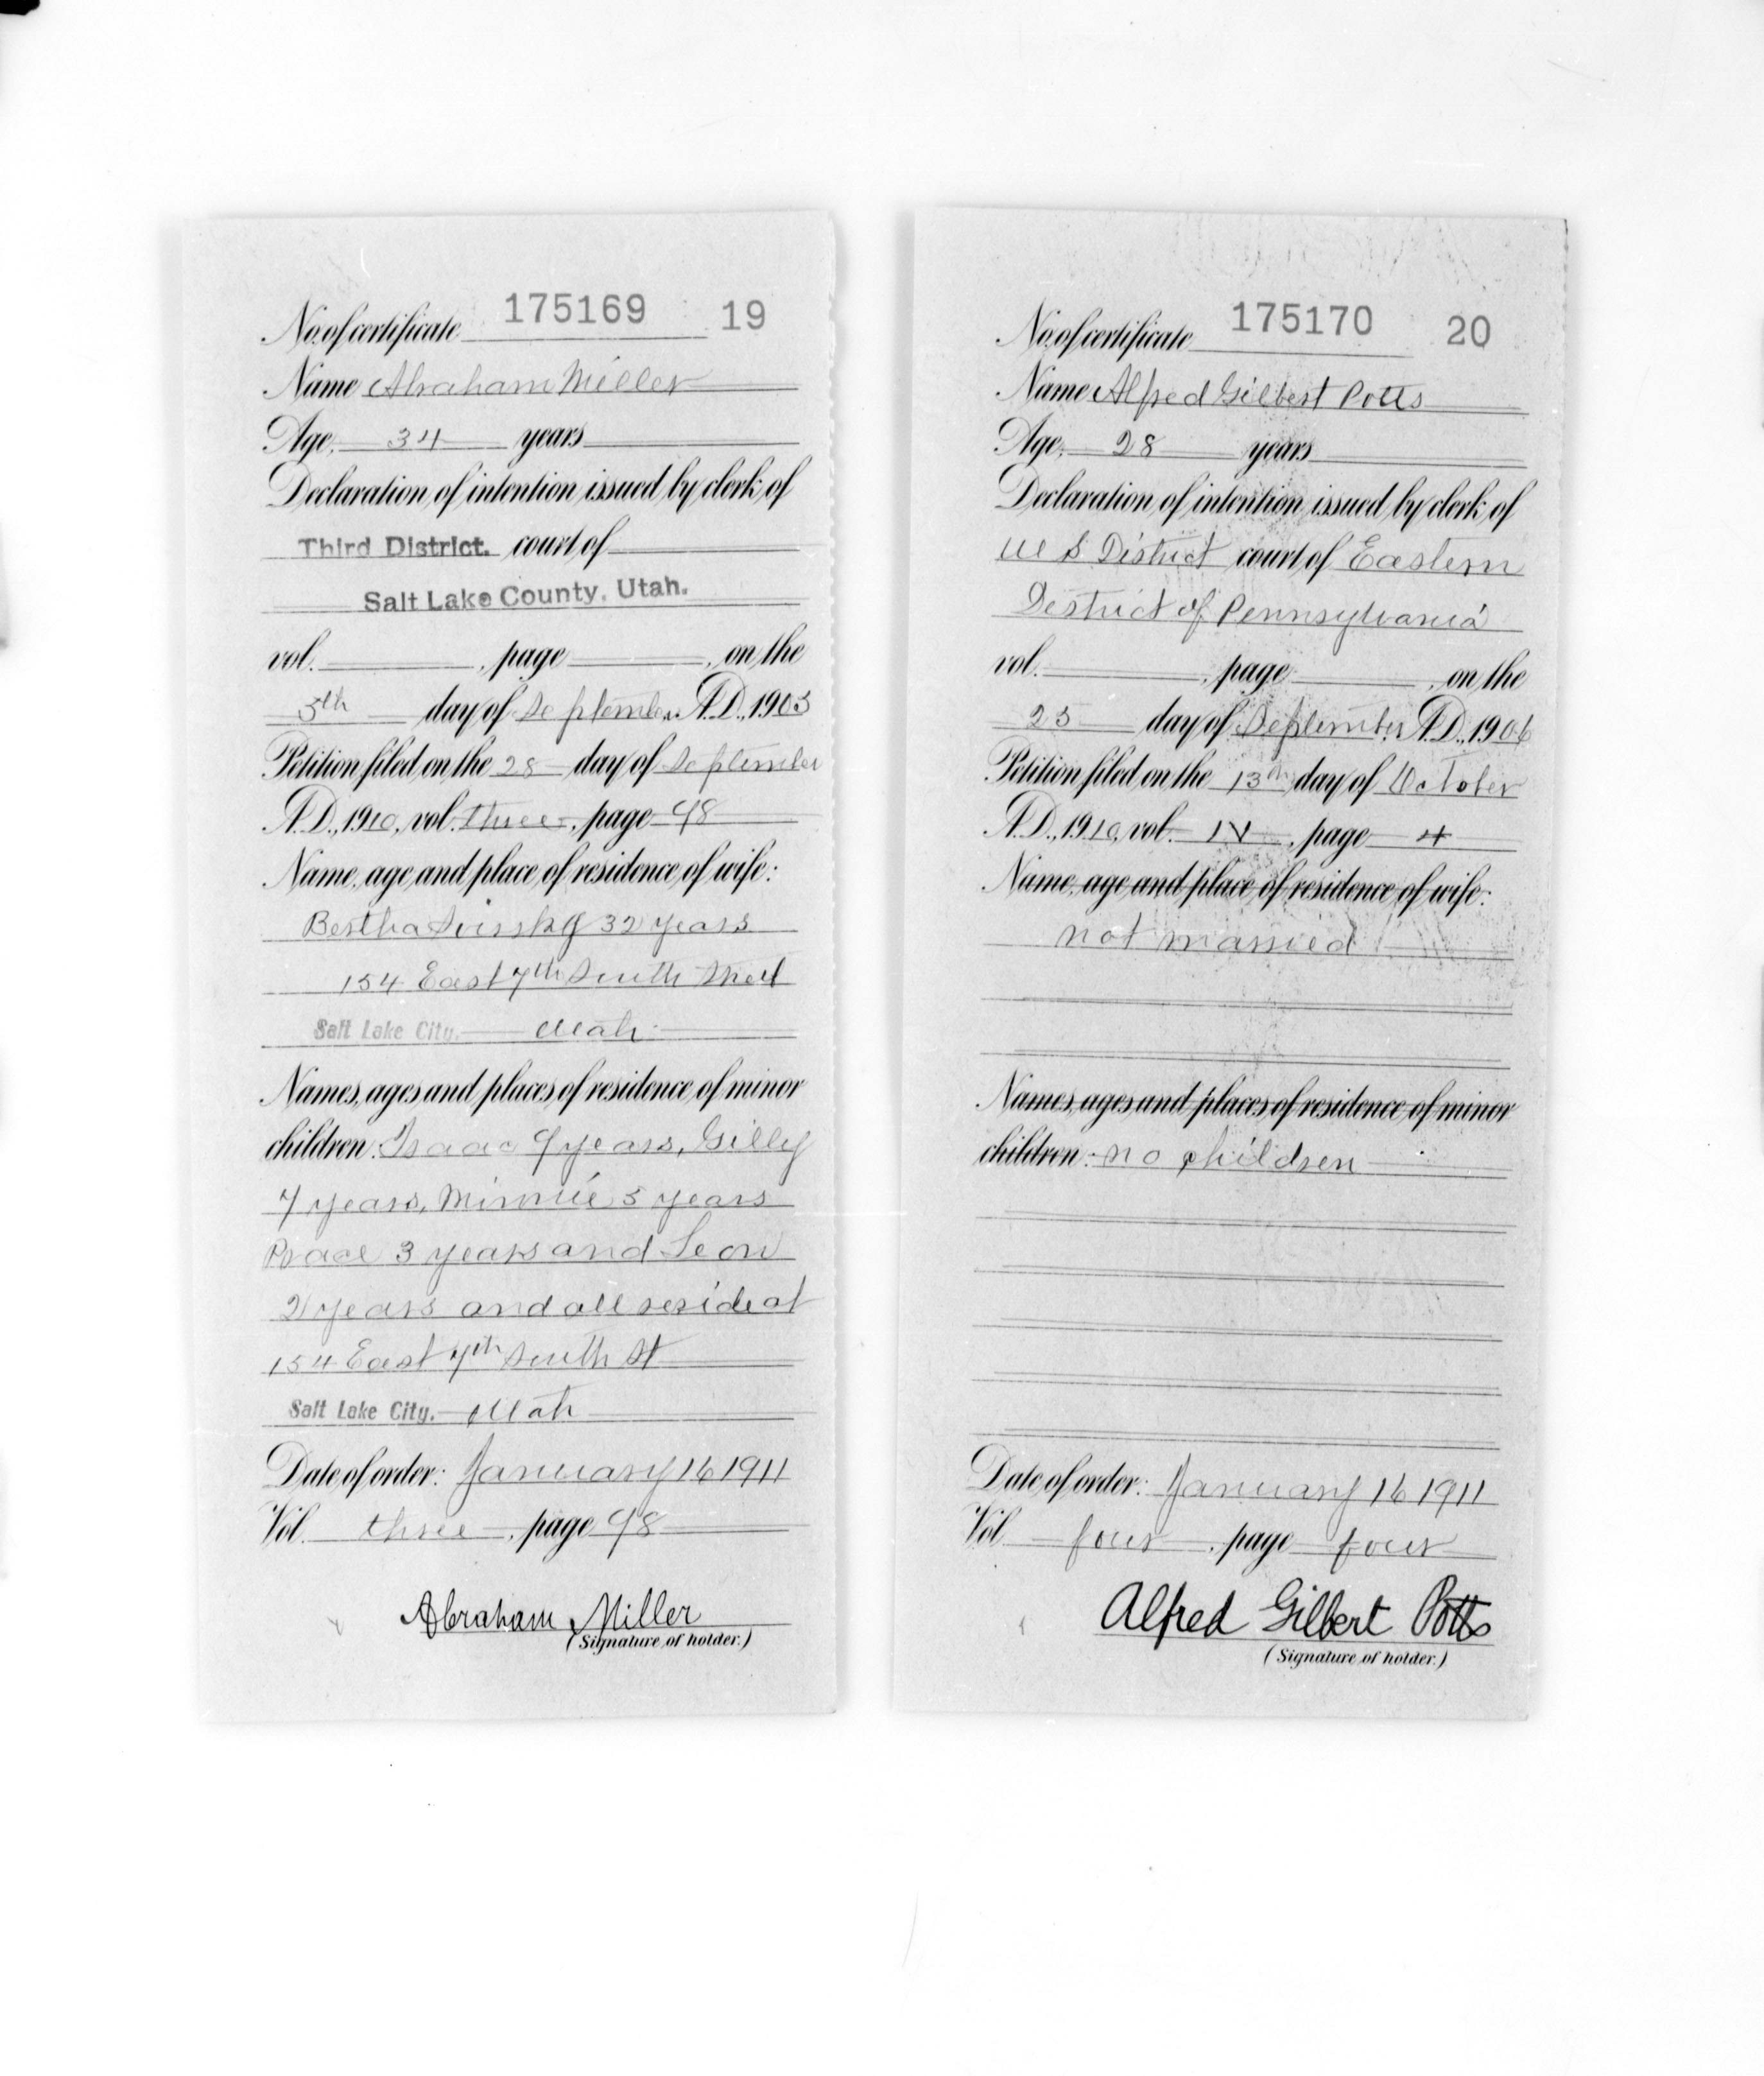 No. of certificate 175169 19
Name Abraham Miller
Age, 34 years
Declaration of intention issued by clerk of
Third District. court of
Salt Lake County, Utah.
vol. , page , on the
5th day of September A.D., 1905
Petition filed on the 28 day of September
A.D., 1910, vol. three, page 98
Name, age and place of residence of wife:
Bertha 32 years
154 East 7th South Street
Salt Lake City. Utah
Names, ages and places of residence of minor
children: Isaac 9 years, Gilly
7 years, Minnie 5 years
3 years and Leon
2 years and all reside at
154 East 7th South St
Salt Lake City. Utah
Date of order: January 16 1911
Vol. three, page 98
Abraham Miller
(Signature of holder.)
No. of certificate 175170 20
Name Alfred Gilbert Potts
Age, 28 years
Declaration of intention issued by clerk of
U S District court of Eastern
District of Pennsylvania
vol. , page , on the
25 day of September A.D., 1906
Petition filed on the 13th day of October
A.D., 1910, vol. IV, page 4
Name, age and place of residence of wife:
not married
Names, ages and places of residence of minor
children: no children
Date of order: January 16 1911
Vol. four, page four
Alfred Gilbert Potts
(Signature of holder.)